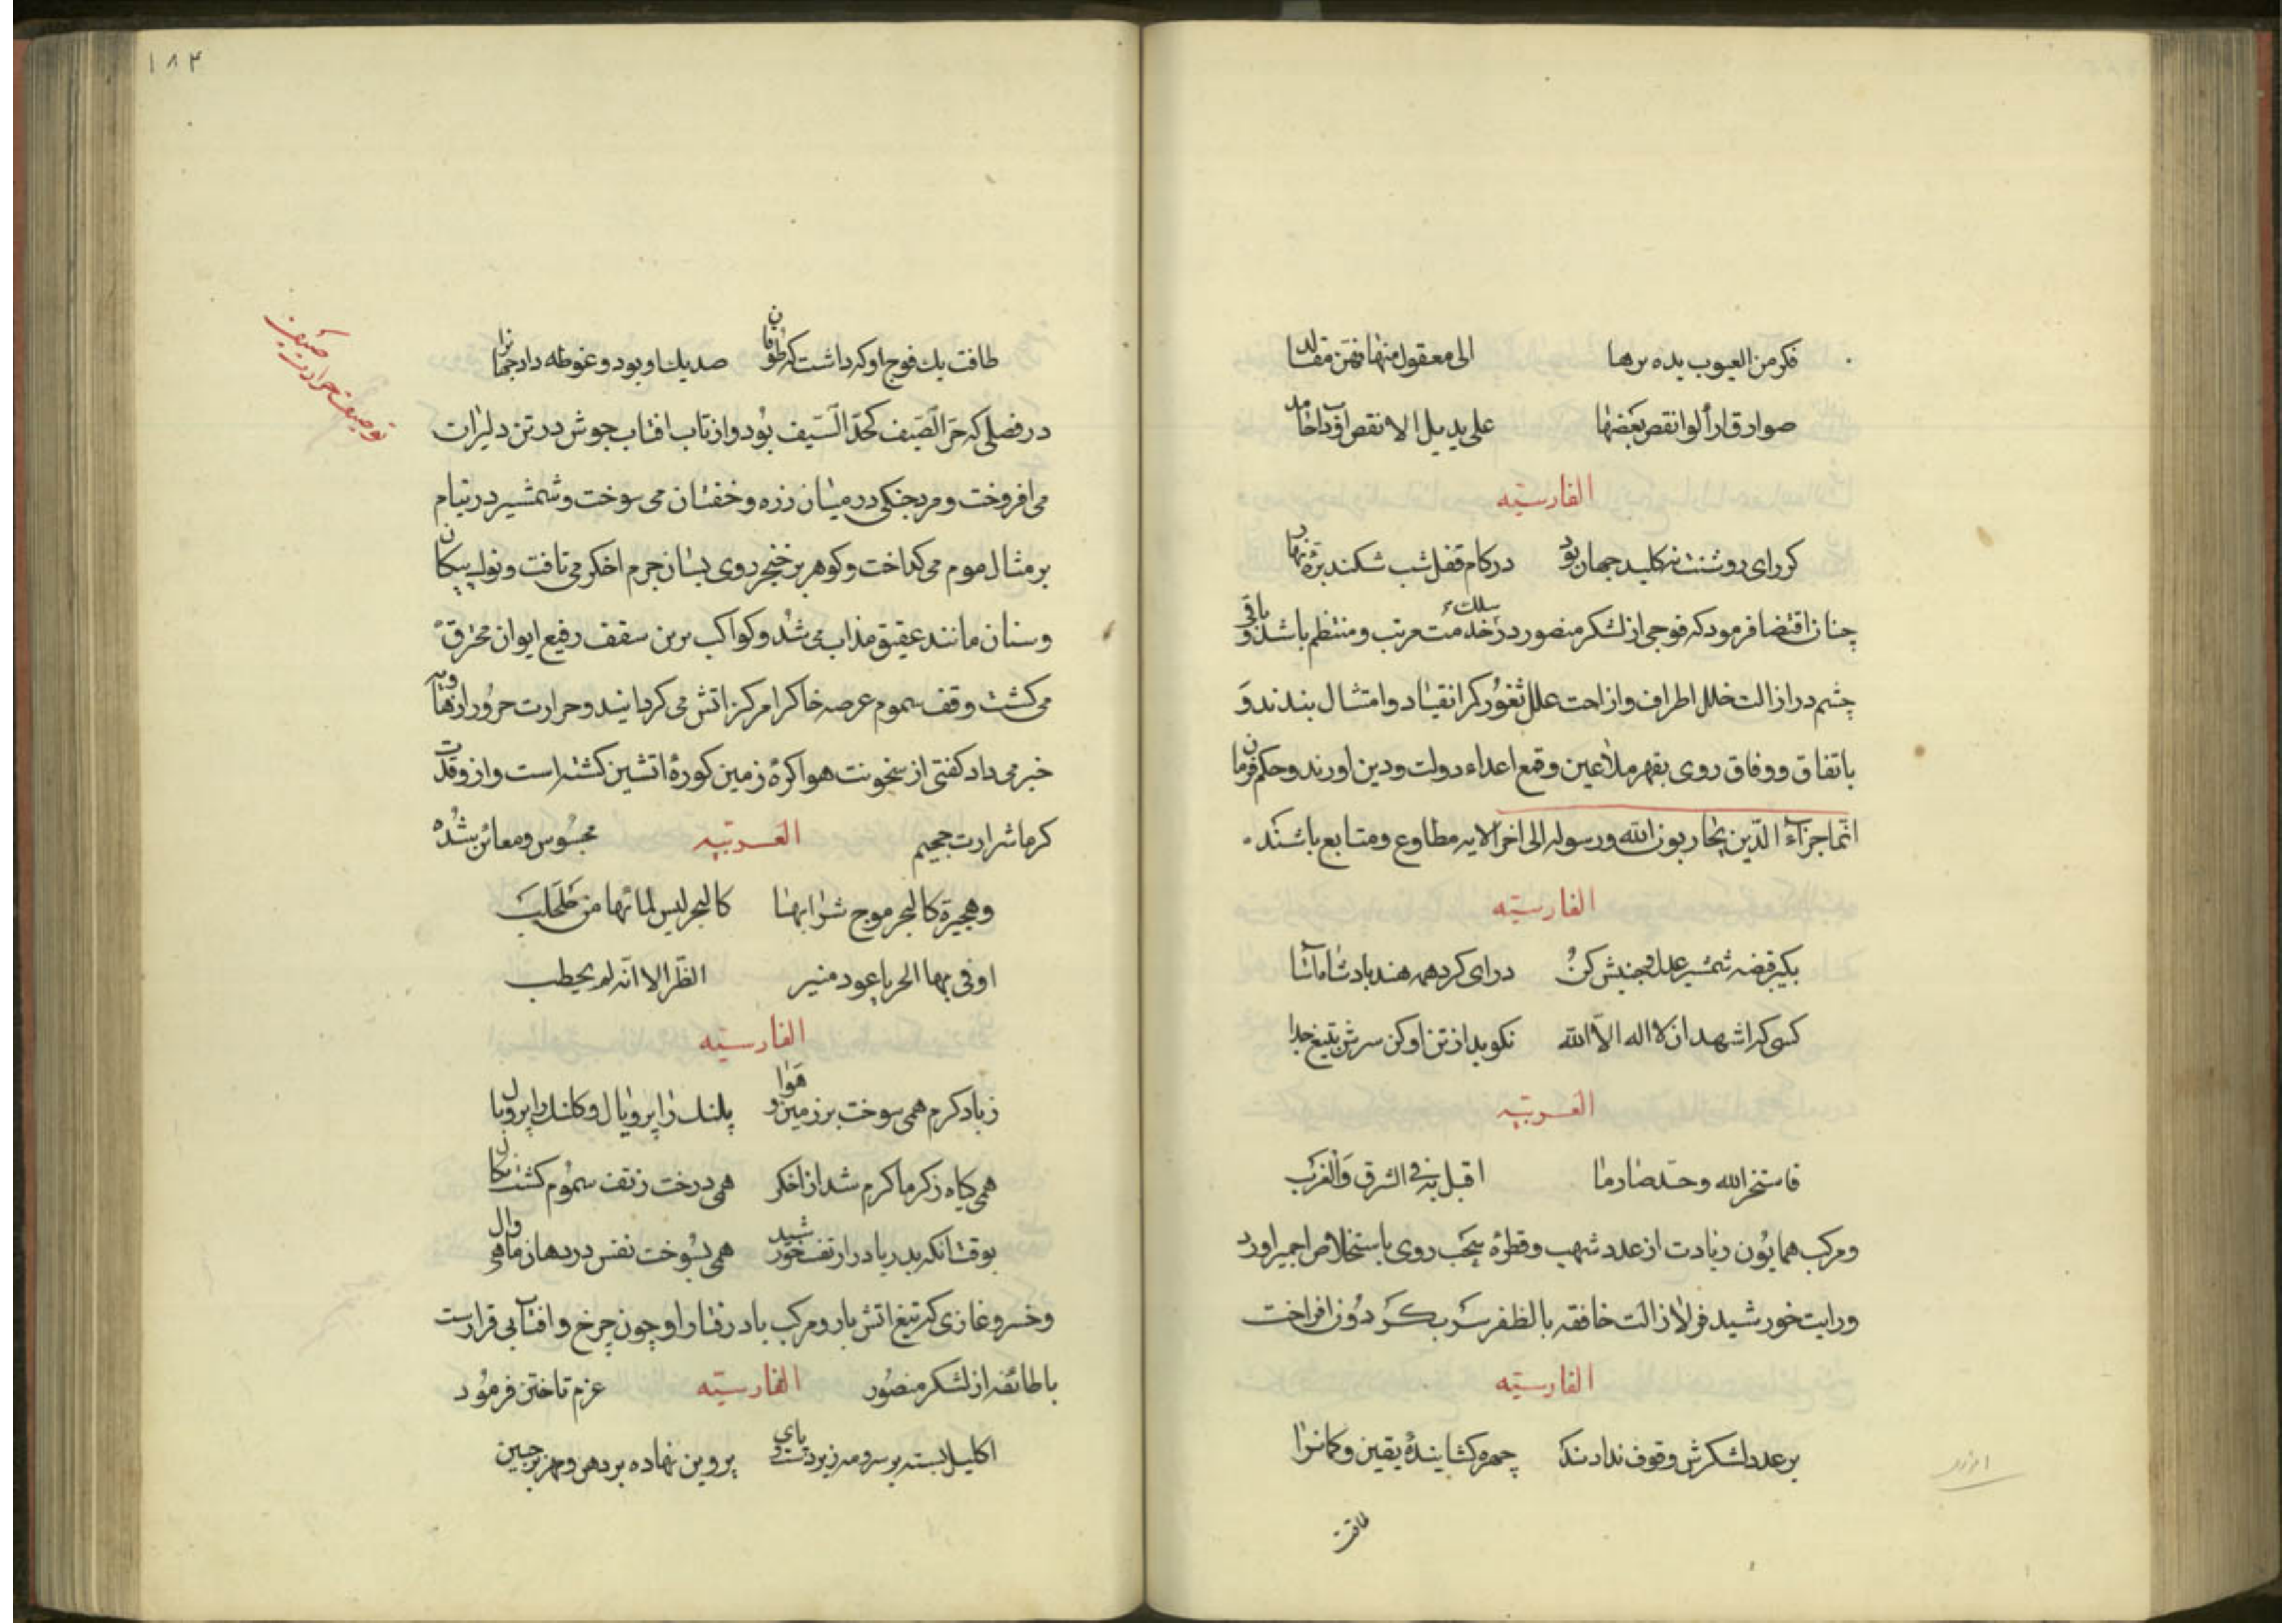 فکر من العیوب یده برها الی معقول منها فهن مقالد
صوادق ارألوا نقص بعضها علی یدیل الا نقص اوداخامد
الفارسیّه
کررای روشنت نه کلید جهان بود در کام قفل شب شکند بزه نهار
چنان اقتضا فرمود که فوجی از لشکر منصور در سلک خدمت مرتب و منتظم باشد و باقی
چشم در ازالت خلل اطراف و ازاحت علل ثغور کمر انقیاد و امتثال بندند و
باتفاق و وفاق روی بقهر ملاعین و قمع اعداء دولت و دین اورند و حکم فرمان
انّما جزآء الّذین یحاربون الله و رسوله الی اخر الایه مطاوع و متابع باشند
الفارسیّه
بگیر قبضه شمشیر عدل و جنبش کن درای کرد همه هند پادشا ماآسا
کسی که اشهد ان لا اله الّا الله نکوید از تن او کن سرش بتیغ جدا
العربیّه
فاستخر الله و حد صارما اقبل به فی الشرق والغرب
و مرکب همایون زیادت از عدد شهب و قطرهٔ سحب روی باستخلاص اجمیر اورد
و رایت خورشید فر لازالت خافقه بالظفر سر بکردون افراخت
الفارسیّه
بر عدد لشکرش وقوف ندادند چهره کشایندهٔ یقین و کمانرا
طاقت
۱۸۴
طاقت یک فوج او که داشت که طوفان صدیک او بود و غوطه داد جهانرا
توصیف حرارت صیف
در فصلی که حرّ الصّیف کحدّ السّیف بود و از تاب افتاب جوش در تن دلیران
می افروخت و مرد جنکی در میان زره و خفتان می سوخت و شمشیر در نیام
بر مثال موم می کداخت و کوهر بر خنجر روی بسان جرم اخکر می تافت و نوک پیکان
و سنان مانند عقیق مذاب می شد و کواکب برین سقف رفیع ایوان محترق
می کشت و تف سموم عرصه خاک را مرکز اتش می کردانید و حرارت حرور از هاویه
خبر می داد کفتی از سخونت هوا کرهٔ زمین کورهٔ اتشین کشته است و از وقدت
کرما شرارت جحیم العربیّه محسوس و معائن شده
و هجیرة کالبحر موج شرابها کالبحر لیس لمائها من طحلب
اوفی بها الحرباء عود منبر الظّر الا انّه لم یخطب
الفارسیّه
ز باد کرم همی سوخت بر زمین و هوا پلنک را پر و یال و کلنک را پر و بال
همی کیاه ز کرما کرم شد از اخکر همی درخت ز تف سموم کشت نکال
بوقت انکه بدریا در از تف خورشید همی بسوخت نفس در دهان ماهی وال
و خسرو غازی که تیغ اتش بار و مرکب باد رفتار او چون چرخ و افتاب بی قرارست
با طائفه از لشکر منصور الفارسیّه عزم تاختن فرمود
اکلیل بسته بر سر و مه زیر دست و پای پروین نهاده بر دهن و مهر بر جبین